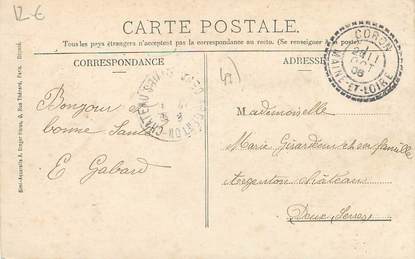 12 €
CARTE POSTALE.
Tous les pays étrangers n'acceptent pas la correspondance au recto. (Se renseigner à la poste).
CORRESPONDANCE
ADRESSE
CORON
24
OCT
06
MAINE-ET-LOIRE
Bonjour et
bonne Santé
E Gabard
Mademoiselle
Marie Girardeau chez sa famille
Argenton Château
Deux Sèvres